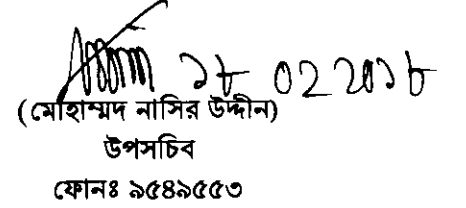 ১৮ 02 2০১৮
(মোহাম্মদ নাসির উদ্দীন)
উপসচিব
ফোনঃ ৯৫৪৯৫৫৩